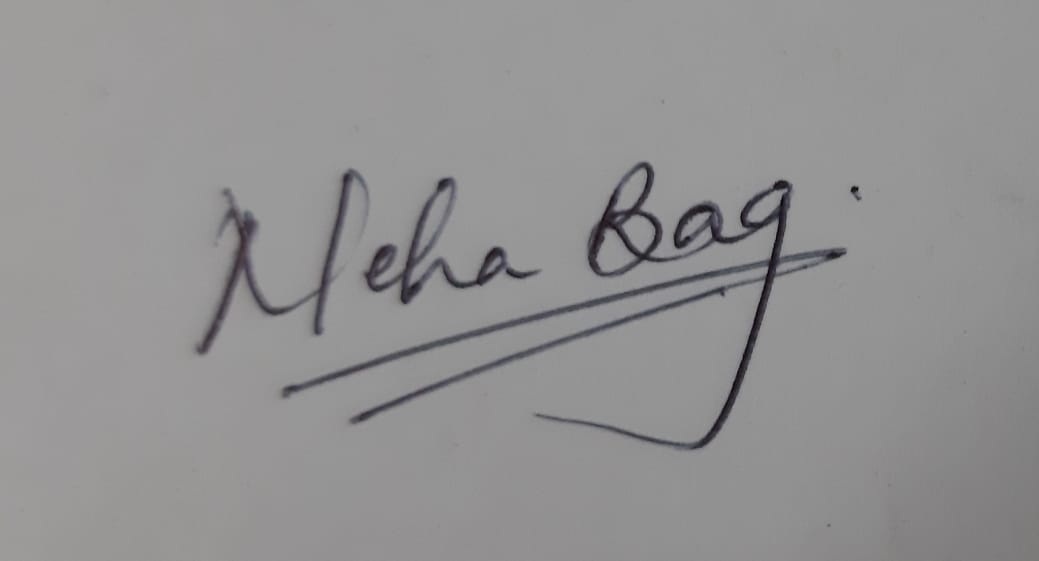 Neha Bag.